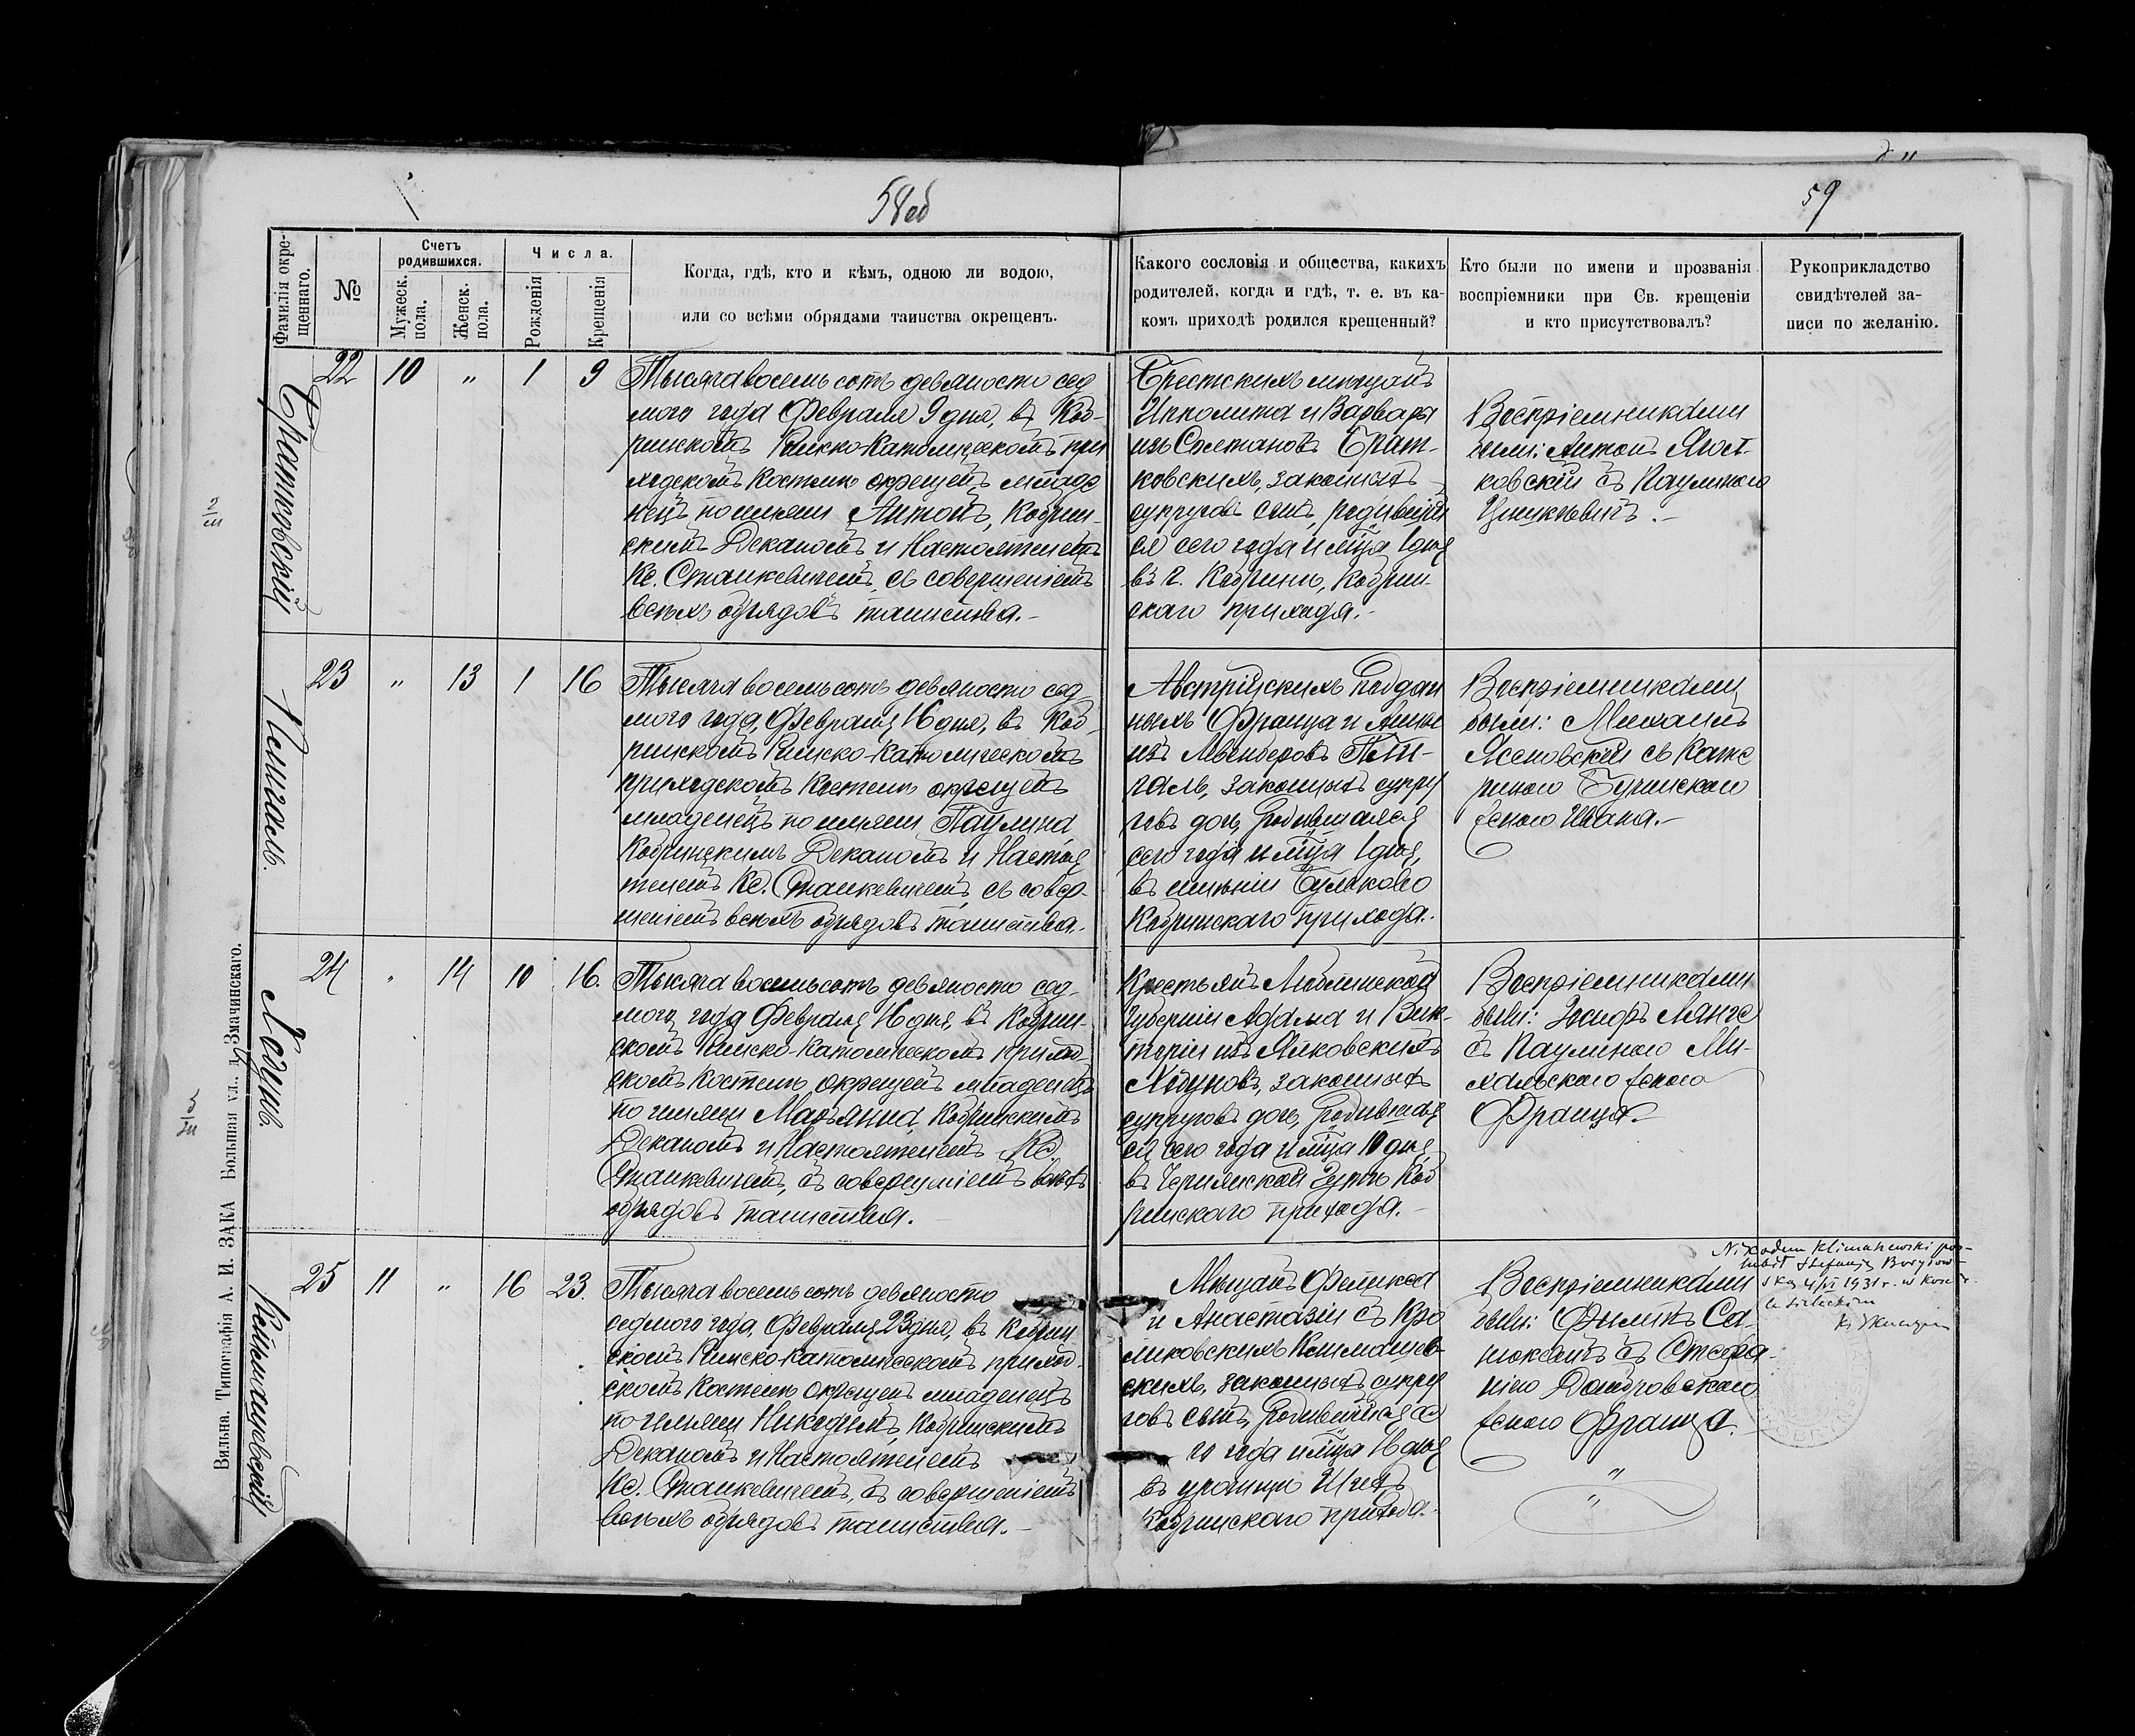 58об
59
Фамилія окре-
щеннаго.
№
Счетъ
родившихся.
Мужеск.
пола.
Женск.
пола.
Числа.
Рожденія
Крещенія
Когда, гдѣ, кто и кѣмъ, одною ли водою,
или со всѣми обрядами таинства окрещенъ.
Какого сословія и общества, какихъ
родителей, когда и гдѣ, т. е. въ ка-
комъ приходѣ родился крещенный?
Кто были по имени и прозванія
воспріемники при Св. крещеніи
и кто присутствовалъ?
Рукоприкладство
свидѣтелей за-
писи по желанію.
Братковскій
22 10 " 1 9
Тысяча восемь сотъ девяносто сед
мого года Февраля 9 дня, въ Коб-
ринскомъ Римско-Католическомъ при
ходскомъ Костелѣ окрещенъ младе
нецъ по имени Антонъ, Кобрин-
скимъ Деканомъ и Настоятелемъ
Кс. Станкевичемъ, съ совершеніемъ
всѣхъ обрядовъ таинства.-
Брестскихъ мѣщанъ
Ипполита и Варвары
изъ Солтановъ Брат-
ковскихъ, законныхъ
супруговъ сынъ, родившій
ся сего года и мца 1 дня
въ г. Кобринѣ, Кобрин-
скаго прихода.-
Воспріемниками
были: Антонъ
ковскій съ Паулиною
23 " 13 1 16
Тысяча восемь сотъ девяносто сед-
мого года, Февраля 16 дня, въ Коб-
ринскомъ Римско-Католическомъ
приходскомъ Костелѣ окрещенъ
младенецъ по имени Паулина
Кобринскимъ Деканомъ и Настоя
телемъ Кс. Станкевичемъ, съ совер-
шеніемъ всѣхъ обрядовъ таинства.-
Австрійскихъ Поддан
ныхъ Франца и Анны
изъ
законныхъ супру
говъ дочь, Родившаяся
сего года и мца 1 дня,
въ имѣніи Буляково
Кобринскаго прихода.-
Воспріемниками
были: Михаилъ
Ясеновскій съ Кате
риною Бучинскаго
женою Ивана.-
24 " 14 10 16.
Тысяча восемьсотъ девяносто сед-
мого года Февраля 16 дня, въ Кобрин-
скомъ Римско-Католическомъ приход-
скомъ Костелѣ окрещенъ младенецъ
по имени Марьянна Кобринскимъ
Деканомъ и Настоятелемъ Кс.
Станкевичемъ, съ совершеніемъ всѣхъ
обрядовъ таинства.
Крестьянъ Люблинской
Губерніи Адама и Вик-
торіи изъ Янковскихъ
законныхъ
супруговъ дочь, Родившая
ся сего года и мца 10 дня,
въ Коб
ринскаго прихода.-
Воспріемниками
были: Іосифъ Лянге
съ Паулиною Ми-
хальскаго женою
Франца.-
Климашевскій
25 11 " 16 23.
Тысяча восемь сотъ девяносто
седмого года, Февраля 23 дня, въ Кобрин
скомъ Римско-Католическомъ приход-
скомъ Костелѣ окрещенъ младенецъ
по имени Никодимъ, Кобринскимъ
Деканомъ и Настоятелемъ
Кс. Станкевичемъ, съ совершеніемъ
всѣхъ обрядовъ таинства.-
Мѣщанъ Феликса
и Анастазіи съ Кро
ликовскихъ Климашев-
скихъ, законныхъ супру
говъ сынъ, Родившійся се
го года и мца 16 дня
въ урочищѣ
Кобринскаго прихода.-
Воспріемниками
были:
съ Стефа-
ніею Домбровскаго
женою Франца.
Nikodem Klimaszewski poś-
lubił Stefanję Borysow-
ską 4/VI 1931 r. w kośc.
Вильна. Типографія А. И. ЗАКА Большая ул., д. Змачинскаго.